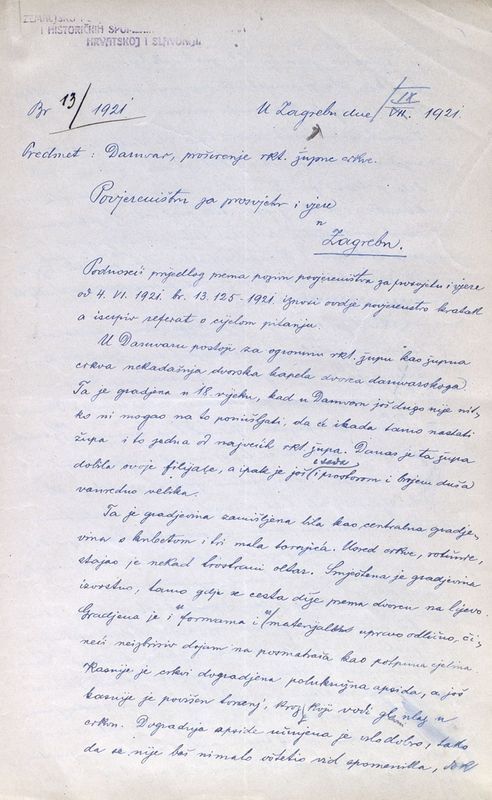 I HISTORIČKIH
HRVATSKOJ I SLAVONIJI.
Br 13/1921
U Zagrebu dne IX VII. 1921.
Predmet: Daruvar, proširenje rkt. župne crkve.
Povjereništvu za prosvjetu i vjere
u
Zagrebu.
Podnoseć prijedlog prema pozivu povjereništva za prosvjetu i vjere
od 4. VI. 1921. br. 13.125-1921. iznosi ovdje povjerenstvo kratak
a iscrpiv referat o cijelom pitanju.
U Daruvaru postoji za ogromnu rkt. župu kao župna
crkva nekadašnja dvorska kapela dvorca daruvarskoga
Ta je gradjena u 18. vijeku, kad u Daruvaru još dugo nije nit-
ko ni mogao na to pomišljati, da će ikada tamo nastati
župa i to jedna od najvećih rkt. župa. Danas je ta župa
dobila svoje filijale, a ipak je još i sada i prostorom i brojem duša
vanredno velika.
Ta je gradjevina zamišljena bila kao centralna gradje-
vina s kubetom i tri mala tornjića. Usred crkve, rotunde,
stajao je nekad trostrani oltar. Smještena je gradjevina
izvrsno, tamo gdje se cesta diže prema dvorcu na lijevo.
Gradjena je i u formama i u materijalu upravo odlično, či-
neći neizbrisiv dojam na posmatrača kao potpuna cjelina
Kasnije je crkvi dogradjena polukružna apsida, a još
kasnije je povišen toranj, kroz koji vodi glavni ulaz u
crkvu. Dogradnja apside učinjena je vrlo dobro, tako
da se nije baš nimalo oštetio vid spomenika,